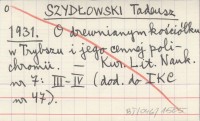 o SZYDŁOWSKI Tadeusz
1931. O drewnianym kościółku
w Trybszu i jego cennej poli-
chromii. — Kur. Lit. Nauk.
nr 7: III-IV (dod. do IKC
nr 47).